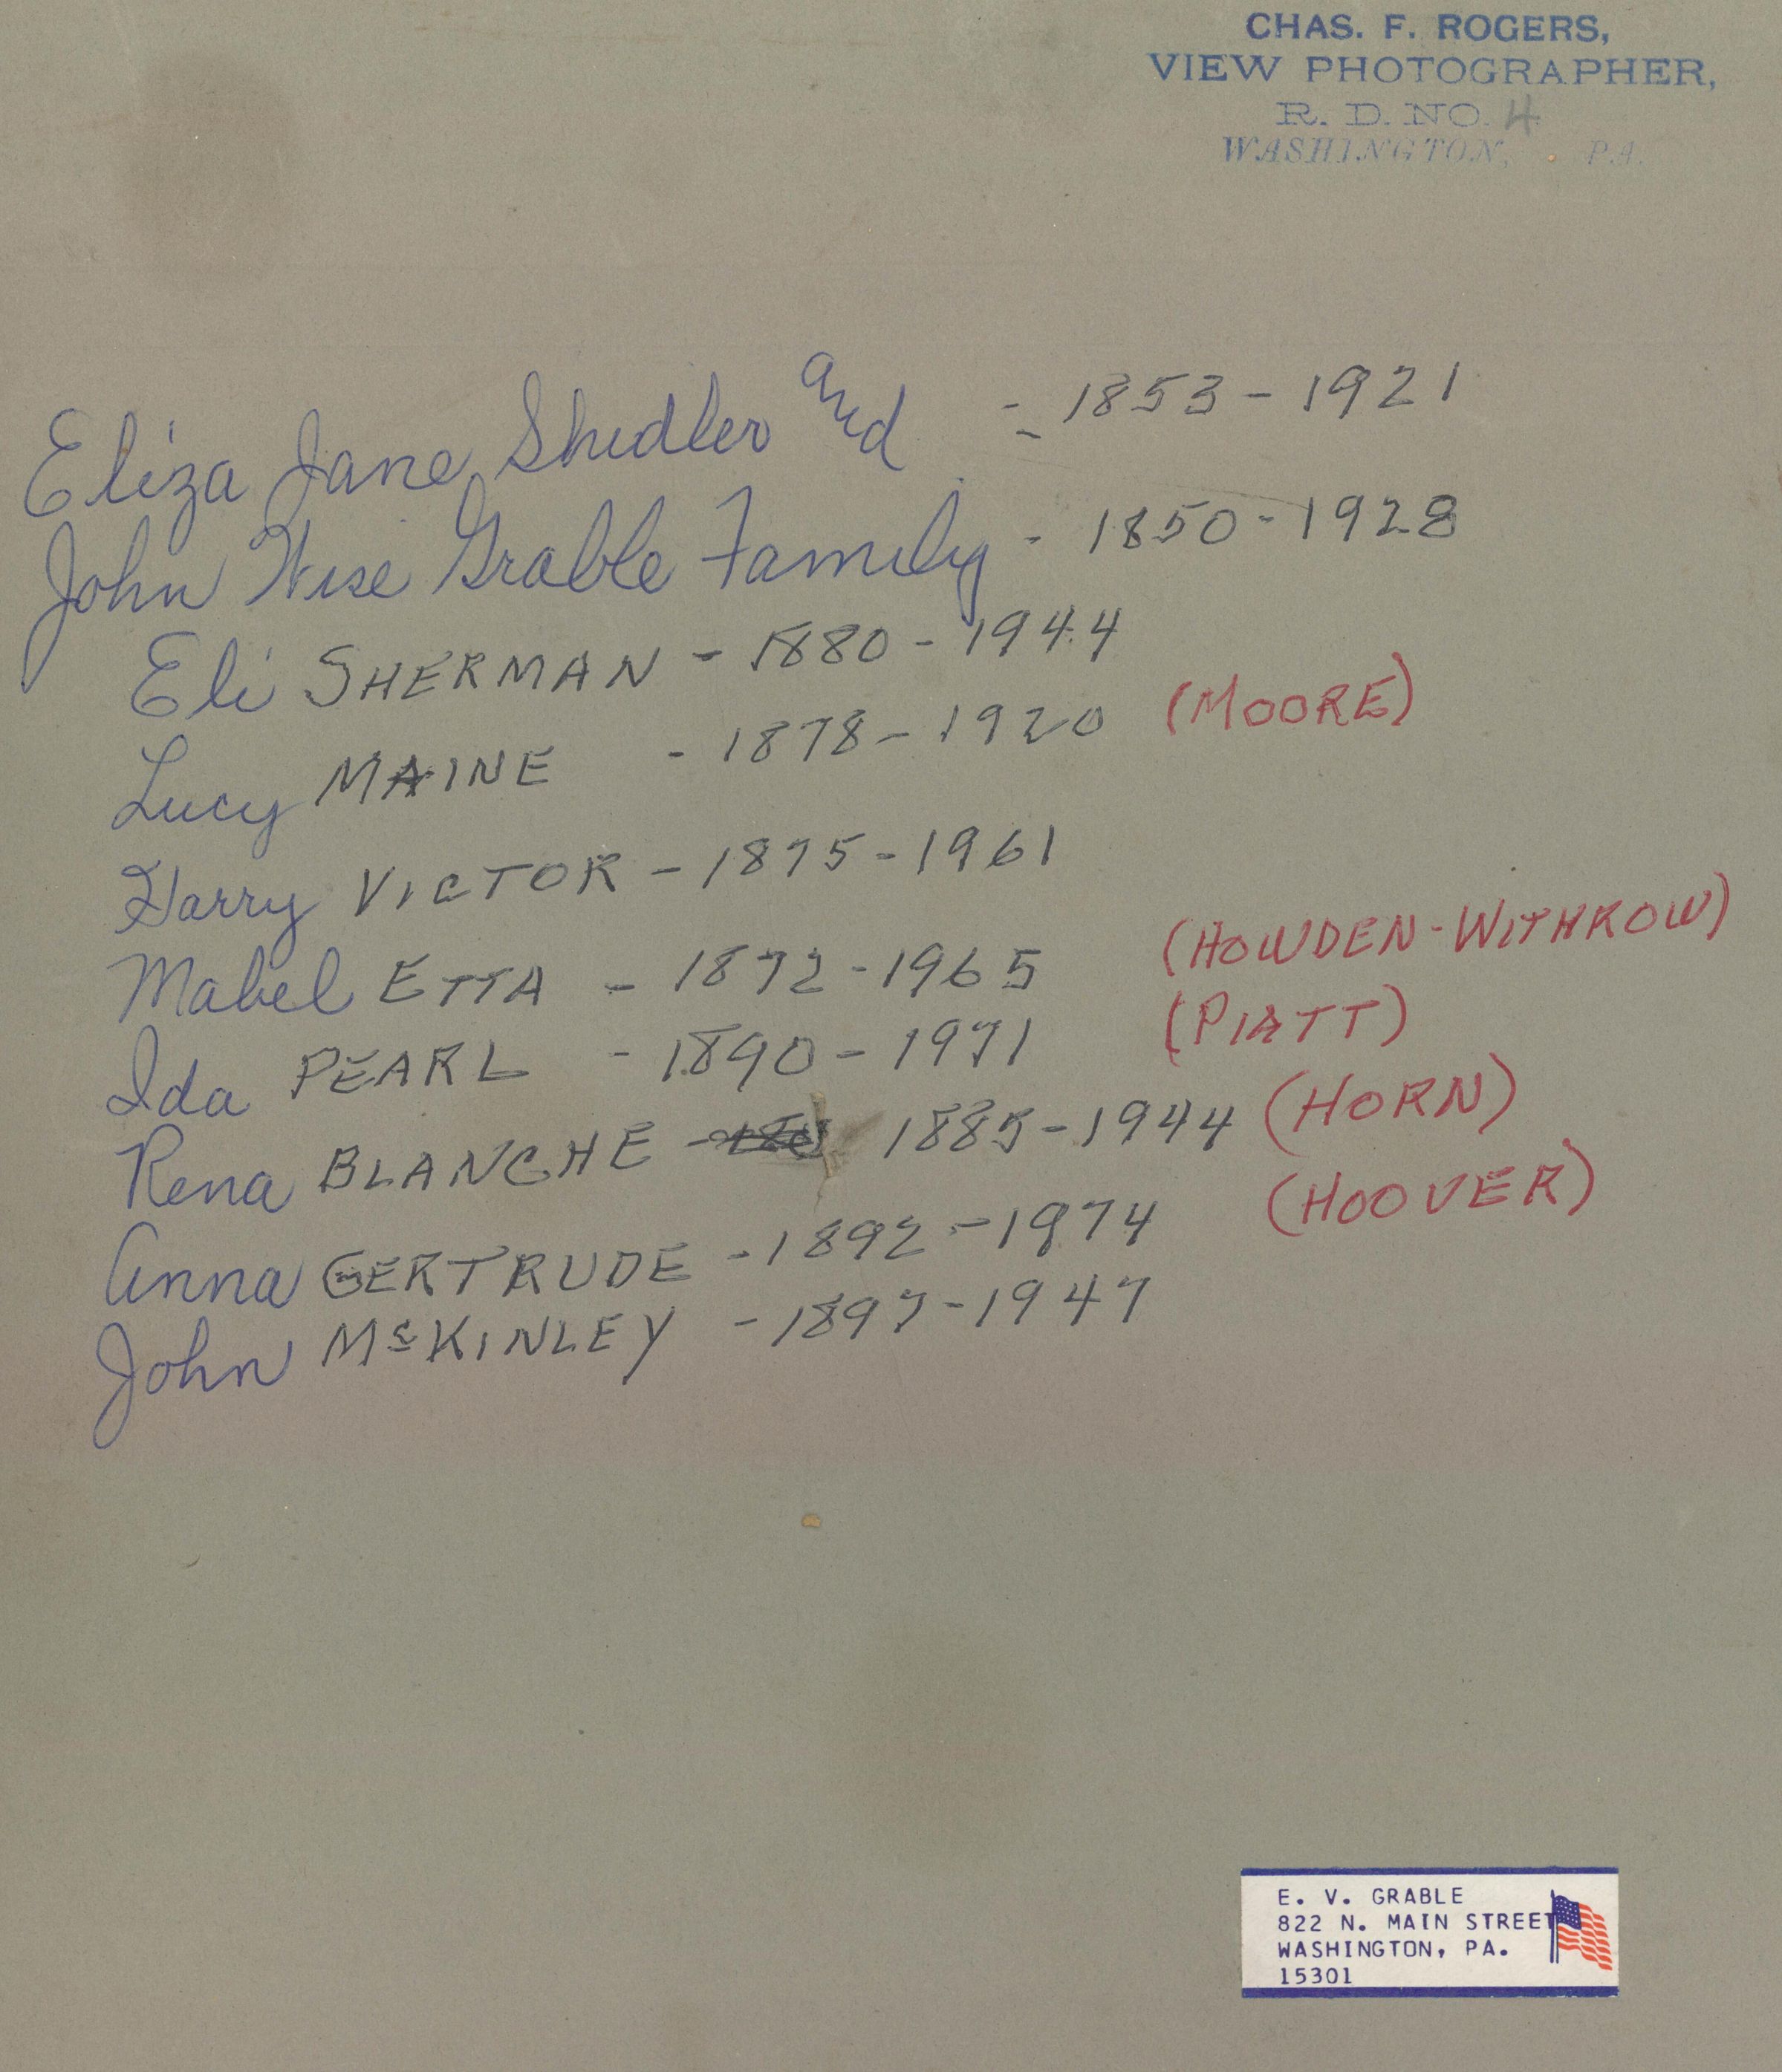 CHAS. F. ROGERS,
VIEW PHOTOGRAPHER,
R. D. NO. 4
WASHINGTON, PA.
Eliza Jane Shidler and - 1853 - 1921
John Wise Grable Family - 1850 - 1928
Eli SHERMAN - 1880 - 1944
Lucy MAINE - 1878 - 1920 (MOORE)
Harry VICTOR - 1875 - 1961
Mabel ETTA - 1872 - 1965 (HOWDEN - WITHROW)
Ida PEARL - 1890 - 1971 (PIATT)
Rena BLANCHE - 1885 - 1944 (HORN)
Anna GERTRUDE - 1892 - 1974 (HOOVER)
John McKINLEY - 1897 - 1947
E. V. GRABLE
822 N. MAIN STREET
WASHINGTON, PA.
15301